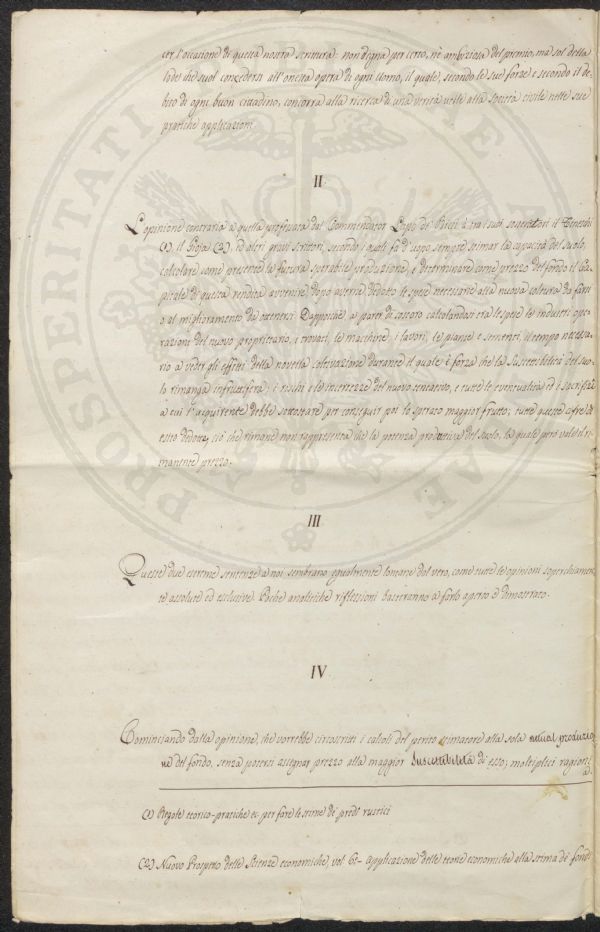 cer l'occasione di questa nostra scrittura: non degna per certo, nè ambiziosa del premio, ma sol della
lode che suol concedersi all'onesta opera di ogni uomo, il quale, secondo le sue forze e secondo il de-
bito di ogni buon cittadino, concorra alla ricerca di una verità utile alla società civile nelle sue
pratiche applicazioni.
II
L'opinione contraria a quella professata dal Commendator Lapo de' Ricci à tra i suoi sostenitori il
(1), il Gioja (2), ed altri gravi scrittori, secondo i quali fa d'uopo sempre stimar la capacità del suolo,
calcolare come presente la futura sperabile produzione, e determinare come prezzo del fondo il Ca-
pitale di questa rendita avvenire, dopo averne dedotto le spese necessarie alla nuova coltura da farsi
o al miglioramento da ottenersi. Dappoichè a parte di costoro calcolandosi tra le spese le industri ope-
razioni del nuovo proprietario, i trovati, le macchine, i lavori, le piante e sementi, il tempo necessa-
rio a veder gli effetti della novella coltivazione durante il quale è forza che la Suscettibilità del suo-
lo rimanga infruttifera; i rischi e le incertezze del nuovo tentativo, e tutte le eventualità ed i sacrifizi
a cui l'acquirente debbe sottostare per conseguir poi lo sperato maggior frutto; tutte queste cifre di
esito dedotte, ciò che rimane non rappresenta che la potenza produttiva del suolo, la quale però vale il ri-
manente prezzo.
III
Queste due estreme sentenze a noi sembrano egualmente lontane dal vero, come tutte le opinioni soperchiamen-
te assolute ed esclusive. Poche analitiche riflessioni basteranno a farlo aperto e dimostrato.
IV
Cominciando dalla opinione, che vorrebbe circoscritti i calcoli del perito stimatore alla sola attual produzio-
ne del fondo, senza potersi assegnar prezzo alla maggior Suscettibilità di esso; moltiplici ragioni
(1) Regole teorico-pratiche &c per fare le stime di predi rustici
(2) Nuovo Prospetto delle Scienze economiche, vol 6º- Applicazione delle teorie economiche alla stima de' fondi
PROSPERITATI